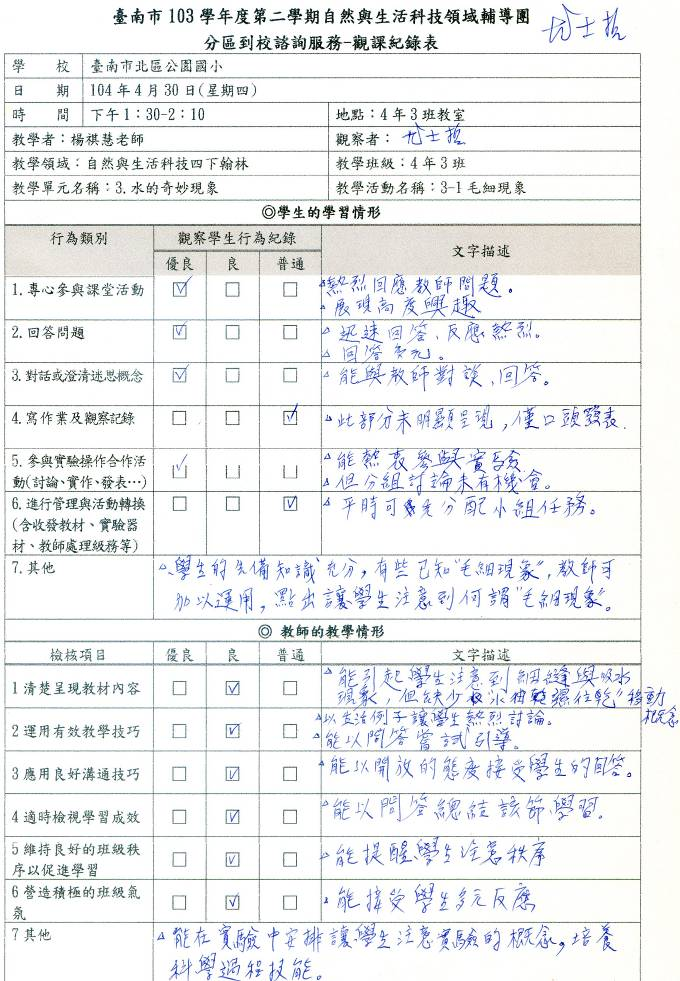 臺南市 103 學年度第二學期自然與生活科技領域輔導團
尤士哲
分區到校諮詢服務-觀課紀錄表
學 校 臺南市北區公園國小
日 期 104 年 4 月 30 日(星期四)
時 間 下午 1：30-2：10 地點：4 年 3 班教室
教學者：楊棋慧老師 觀察者：尤士哲
教學領域：自然與生活科技四下翰林 教學班級：4 年 3 班
教學單元名稱：3.水的奇妙現象 教學活動名稱：3-1 毛細現象
◎學生的學習情形
行為類別 觀察學生行為紀錄 文字描述
優良 良 普通
1.專心參與課堂活動 ☑ □ □ △熱烈回應教師問題。
△展現高度興趣
2.回答問題 ☑ □ □ △迅速回答、反應熱烈。
△回答多元。
3.對話或澄清迷思概念 ☑ □ □ △能與教師對談、回答。
4.寫作業及觀察記錄 □ □ ☑ △此部分未明顯呈現，僅口頭發表.
5.參與實驗操作合作活 ☑ □ □ △能熱衷參與實驗
動(討論、實作、發表…) △但分組討論未有機會。
6.進行管理與活動轉換 □ □ ☑ △平時可先分配小組任務。
(含收發教材、實驗器
材、教師處理級務等)
7.其他 △學生的先備知識充分，有些已知"毛細現象"，教師可
加以運用，點出讓學生注意到何謂"毛細現象"。
◎ 教師的教學情形
檢核項目 優良 良 普通 文字描述
1 清楚呈現教材內容 □ ☑ □ △能引起學生注意到細縫與吸水
現象，但缺少"水由往乾"移動
概念
2 運用有效教學技巧 □ ☑ □ △以生活例子讓學生熱烈討論。
△能以問答嘗試引導。
3 應用良好溝通技巧 □ ☑ □ △能以開放的態度接受學生的回答。
4 適時檢視學習成效 □ ☑ □ △能以問答總結該節學習.
5 維持良好的班級秩 □ ☑ □ △能提醒學生注意秩序
序以促進學習
6 營造積極的班級氣 □ ☑ □ △能接受學生多元反應
氛
7 其他 △能在實驗中安排讓學生注意實驗的概念，培養
科學過程技能。